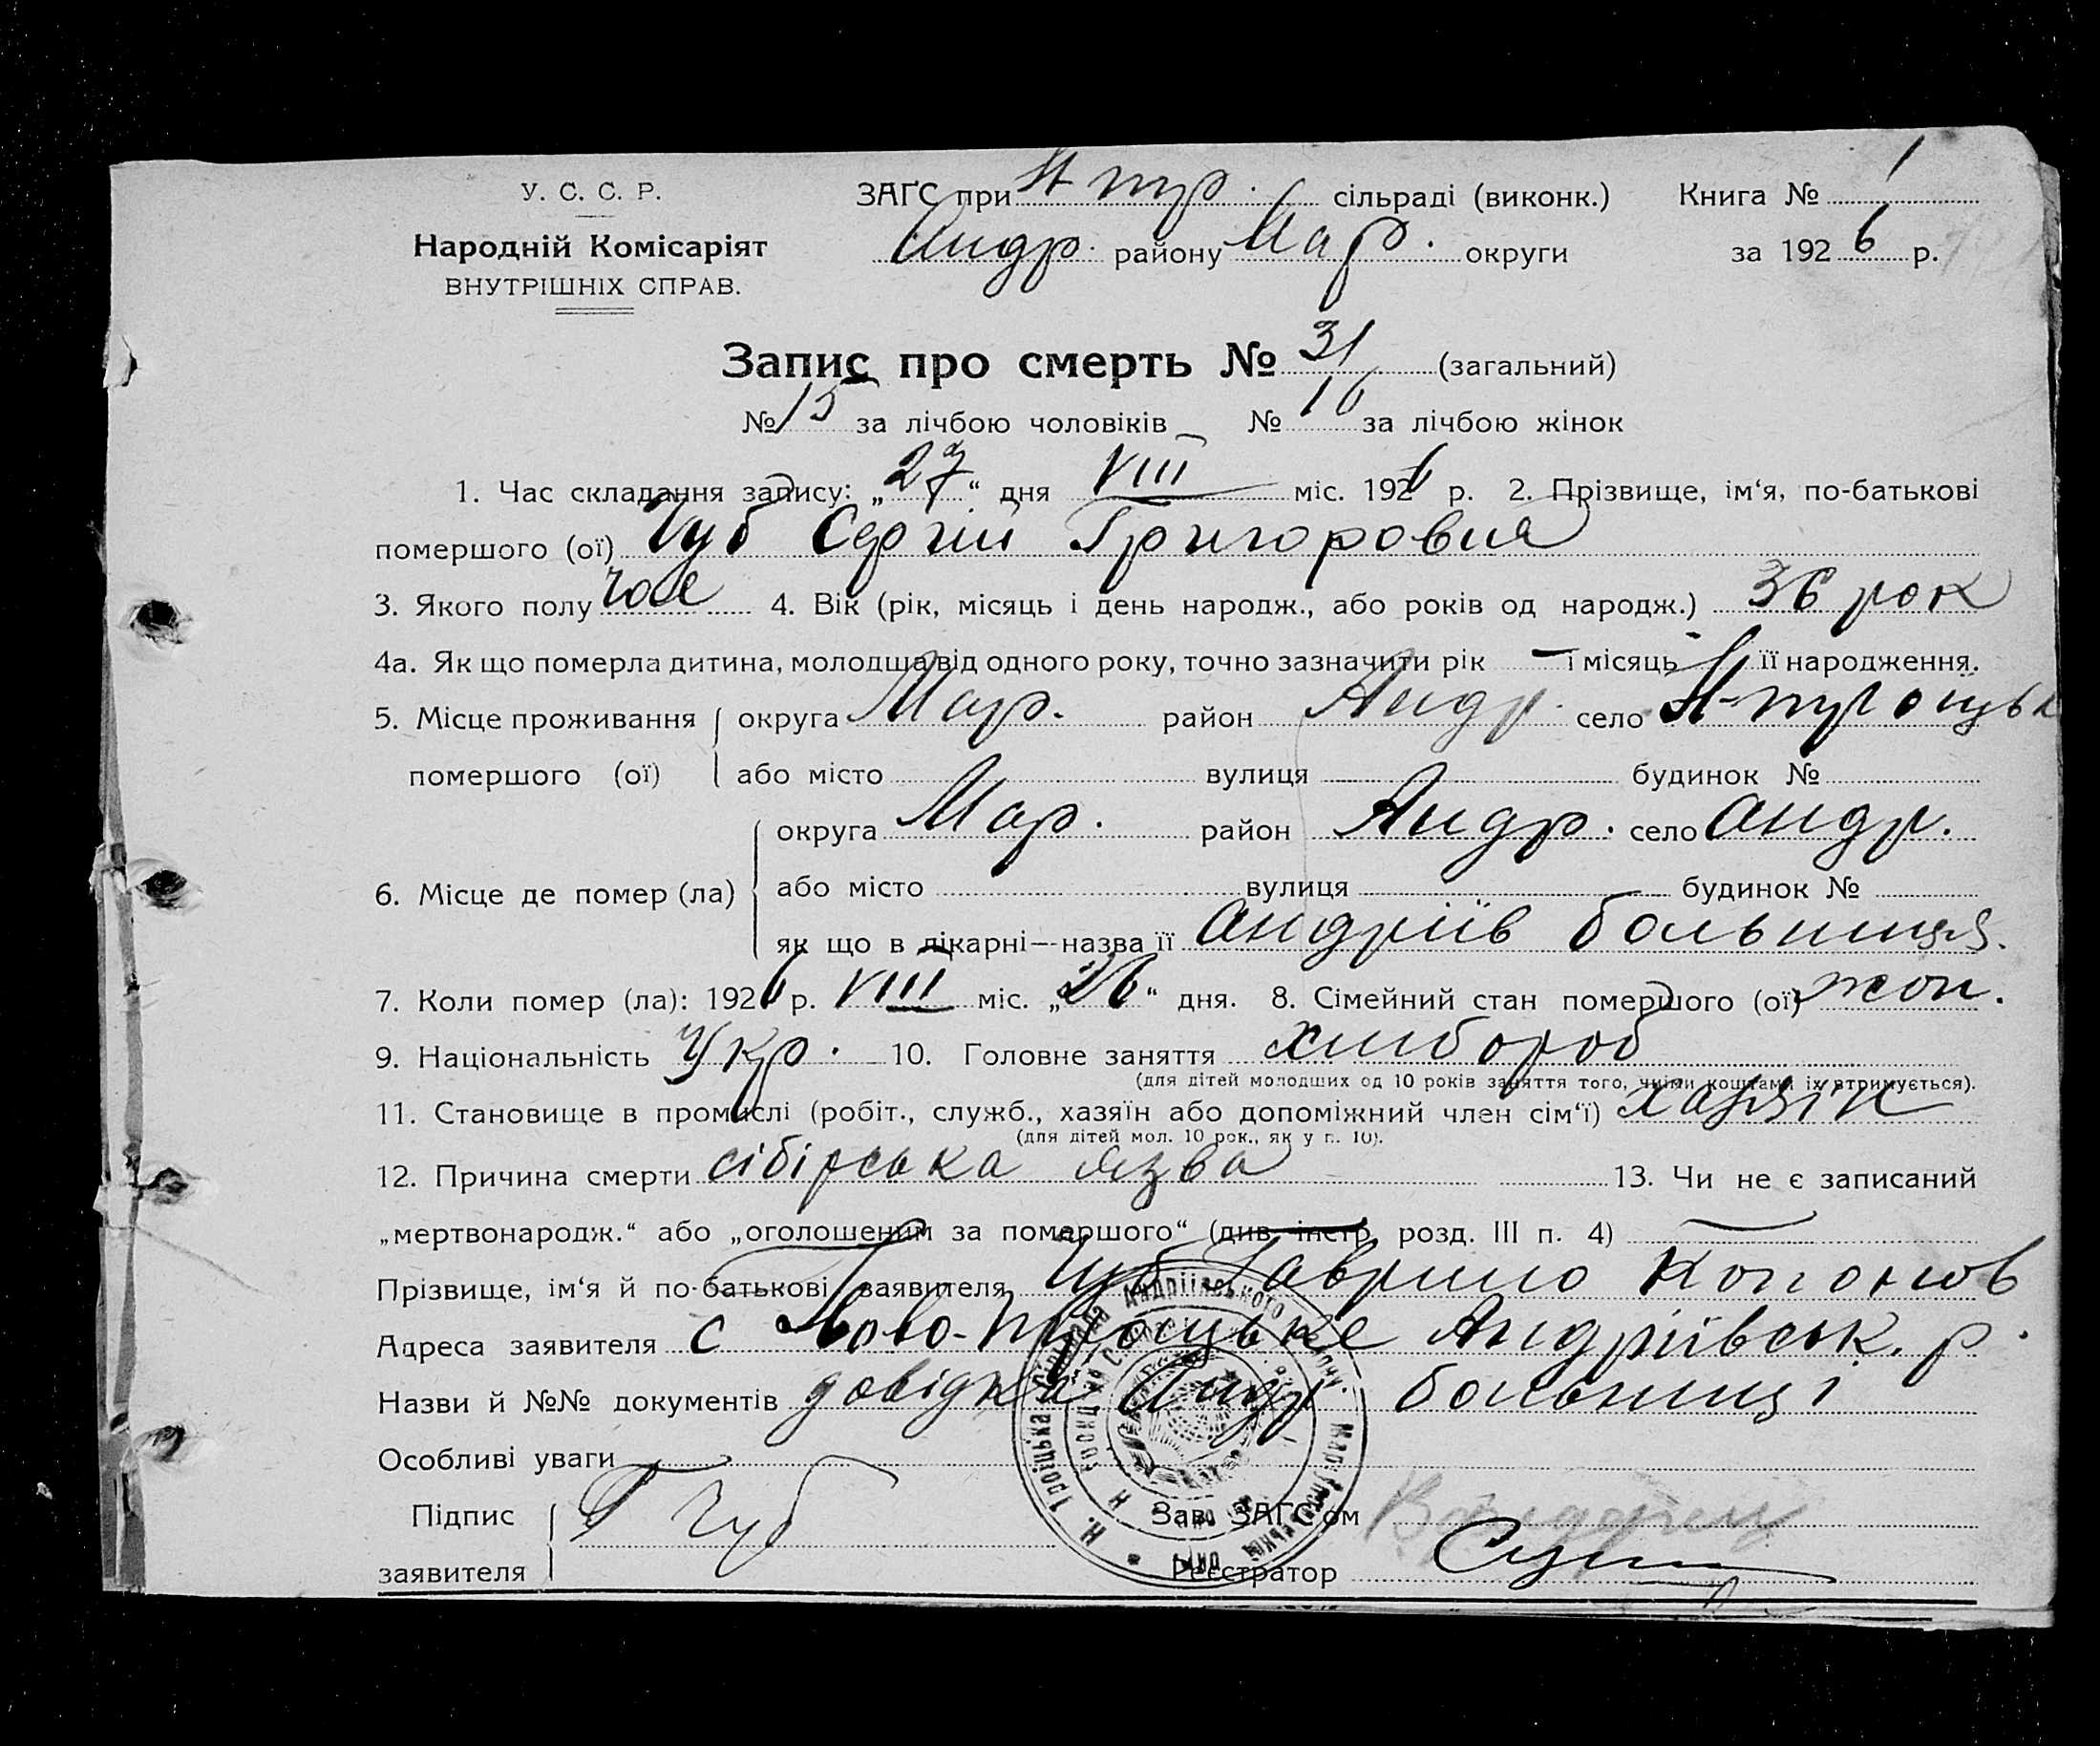 У. С. С. Р.
Народній Комісаріят
ВНУТРІШНІХ СПРАВ.
ЗАҐС при Н тр. сільраді (виконк.) Книга № 1
Андр. району Мар. округи за 1926 р.
Запис про смерть № 31 (загальний)
№ 15 за лічбою чоловіків № 16 за лічбою жінок
1. Час складання запису: „27“ дня VIII міс. 1926 р. 2. Прізвище, ім‘я, по-батькові
помершого (ої) Чуб Сергій Григорович
3. Якого полу чол 4. Вік (рік, місяць і день народж., або років од народж.) 36 рок
4а. Як що померла дитина, молодша від одного року, точно зазначити рік — і місяць її народження.
5. Місце проживання помершого (ої) округа Мар. район Андр. село Н-троіцьк
або місто вулиця будинок №
6. Місце де помер (ла) округа Мар. район Андр. село Андр.
або місто вулиця будинок №
як що в лікарні—назва її Андріїв больниця.
7. Коли помер (ла): 1926 р. VIII міс. „26“ дня. 8. Сімейний стан помершого (ої) жон.
9. Національність Укр. 10. Головне заняття хлібороб
(для дітей молодших од 10 років заняття того, чиїми коштами їх втримується).
11. Становище в промислі (робіт., служб., хазяїн або допоміжний член сім‘ї) хазяїн
(для дітей мол. 10 рок., як у п. 10).
12. Причина смерти сібірська язва 13. Чи не є записаний
„мертвонародж.“ або „оголошеним за помершого“ (див. інстр. розд. III п. 4)
Прізвище, ім‘я й по-батькові заявителя Чуб Гаврило Кононов
Адреса заявителя с Ново-Троіцьке Андріївськ. р.
Назви й №№ документів довідка Андр больниці
Особливі уваги
Підпис заявителя Г Чуб
Зав. ЗАҐС‘ом
Реєстратор
Н. Троіцька Сільрада Андріівського району Маріупільськ. окр.